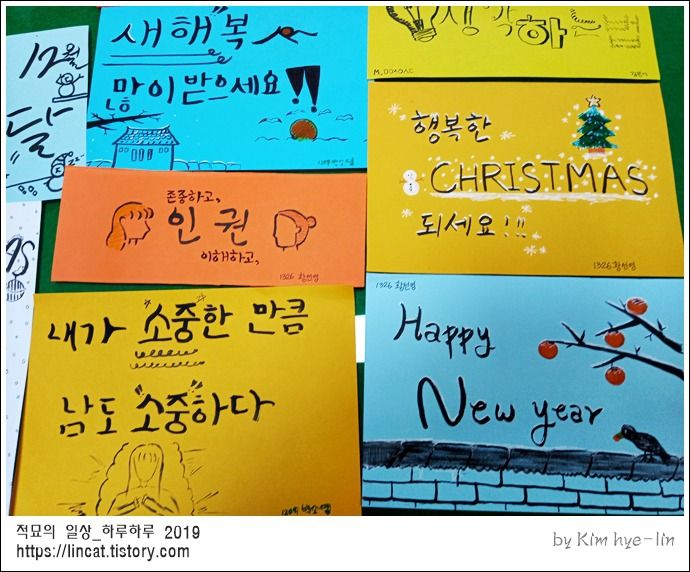 12월
달
새해 복
많이 받으세요!!
생각하는
M.DOKDAE
행복한
CHRISTMAS
되세요!!!
1326 황선영
존중하고,
인권
이해하고,
1326 황선영
내가 "소중한 만큼
남도 "소중"하다
1326 황선영
Happy
New year
적묘의 일상_하루하루 2019
https://lincat.tistory.com
by Kim hye-lin